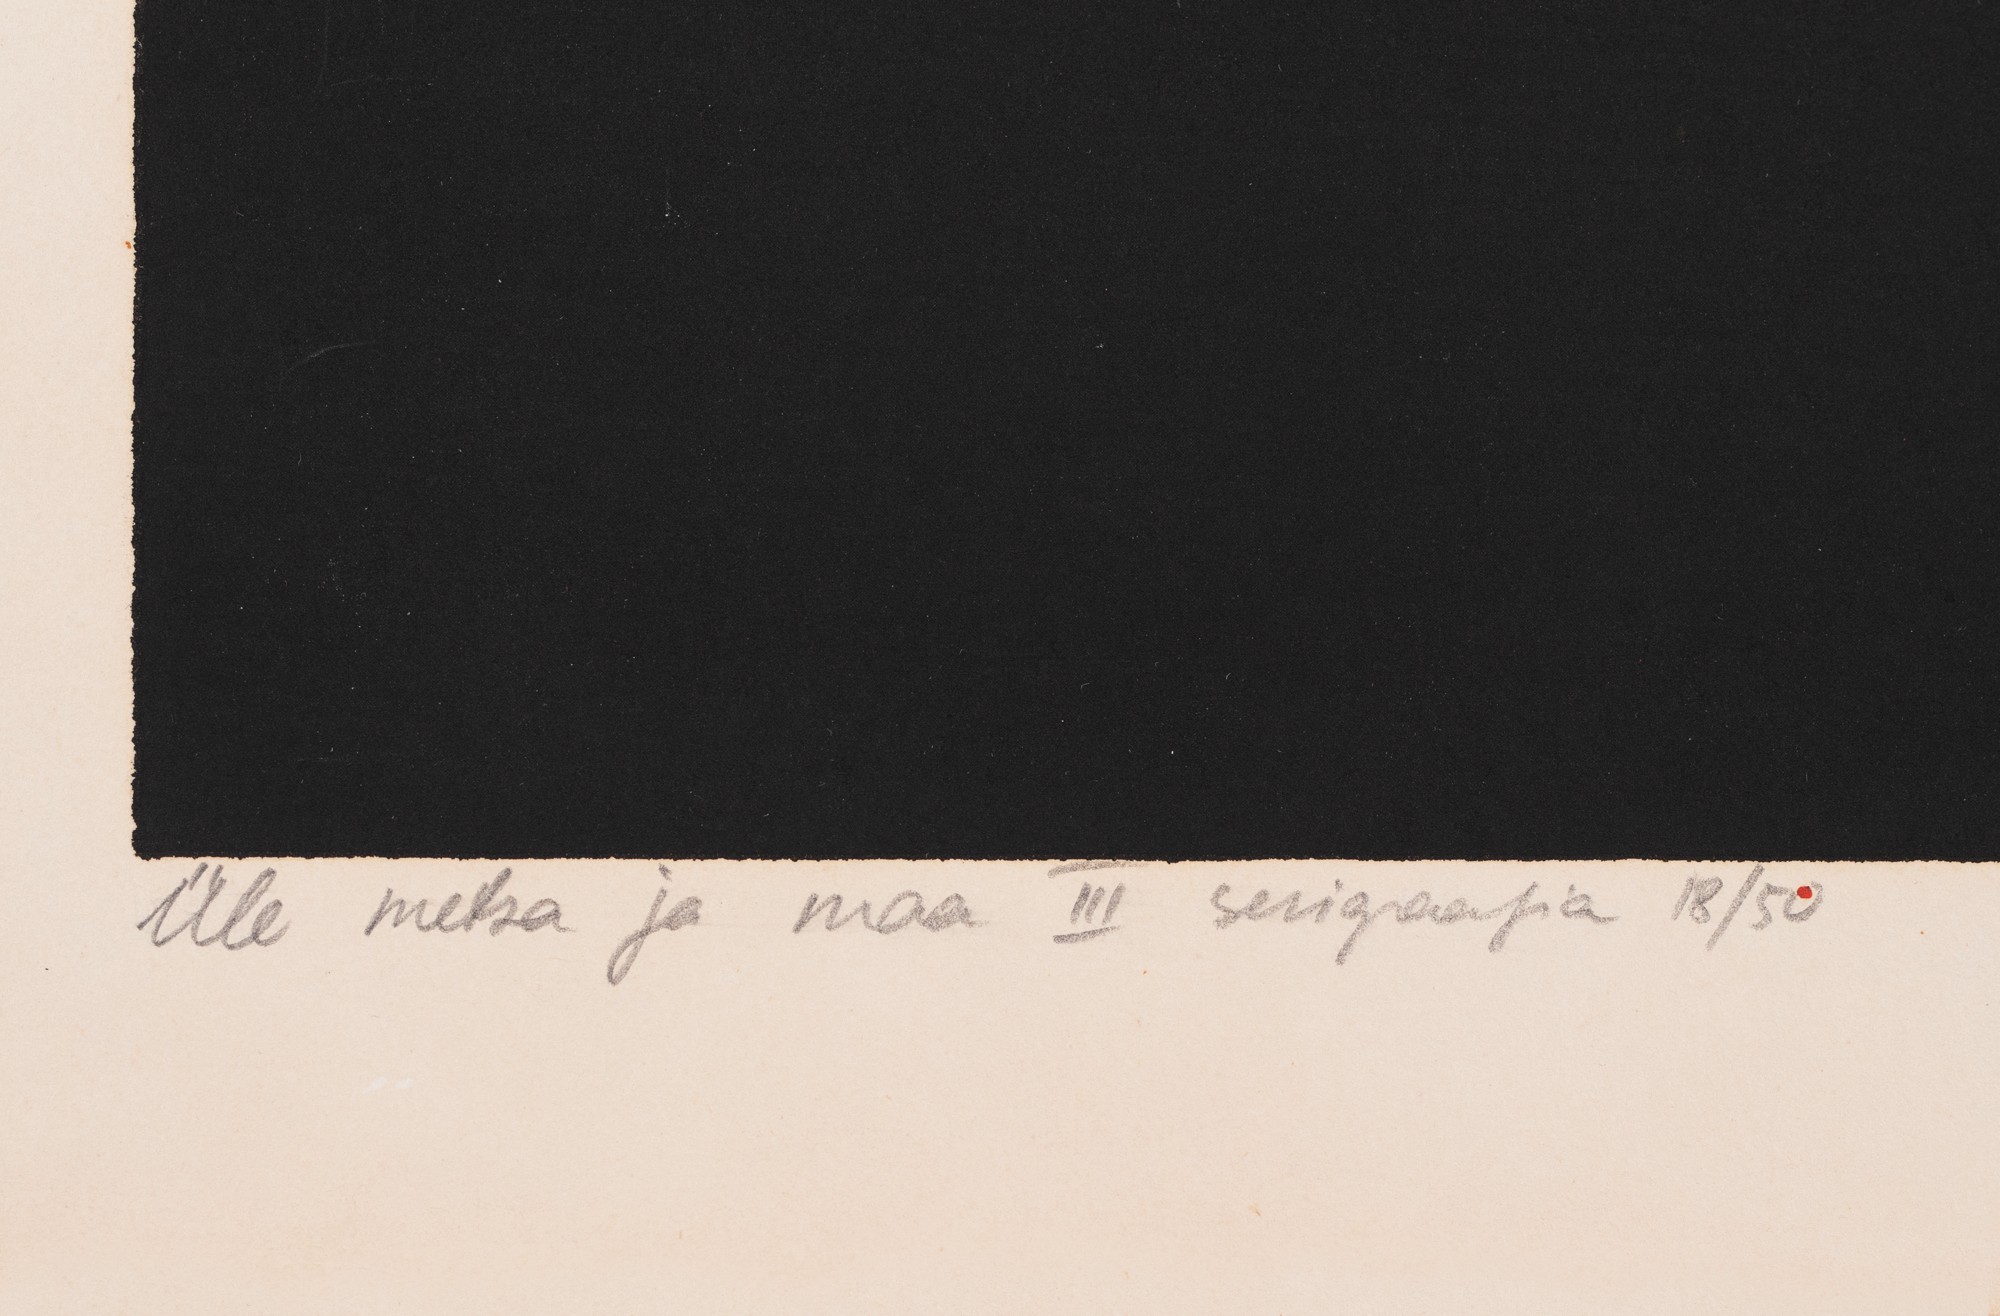 Üle metsa ja maa III serigraafia 18/50